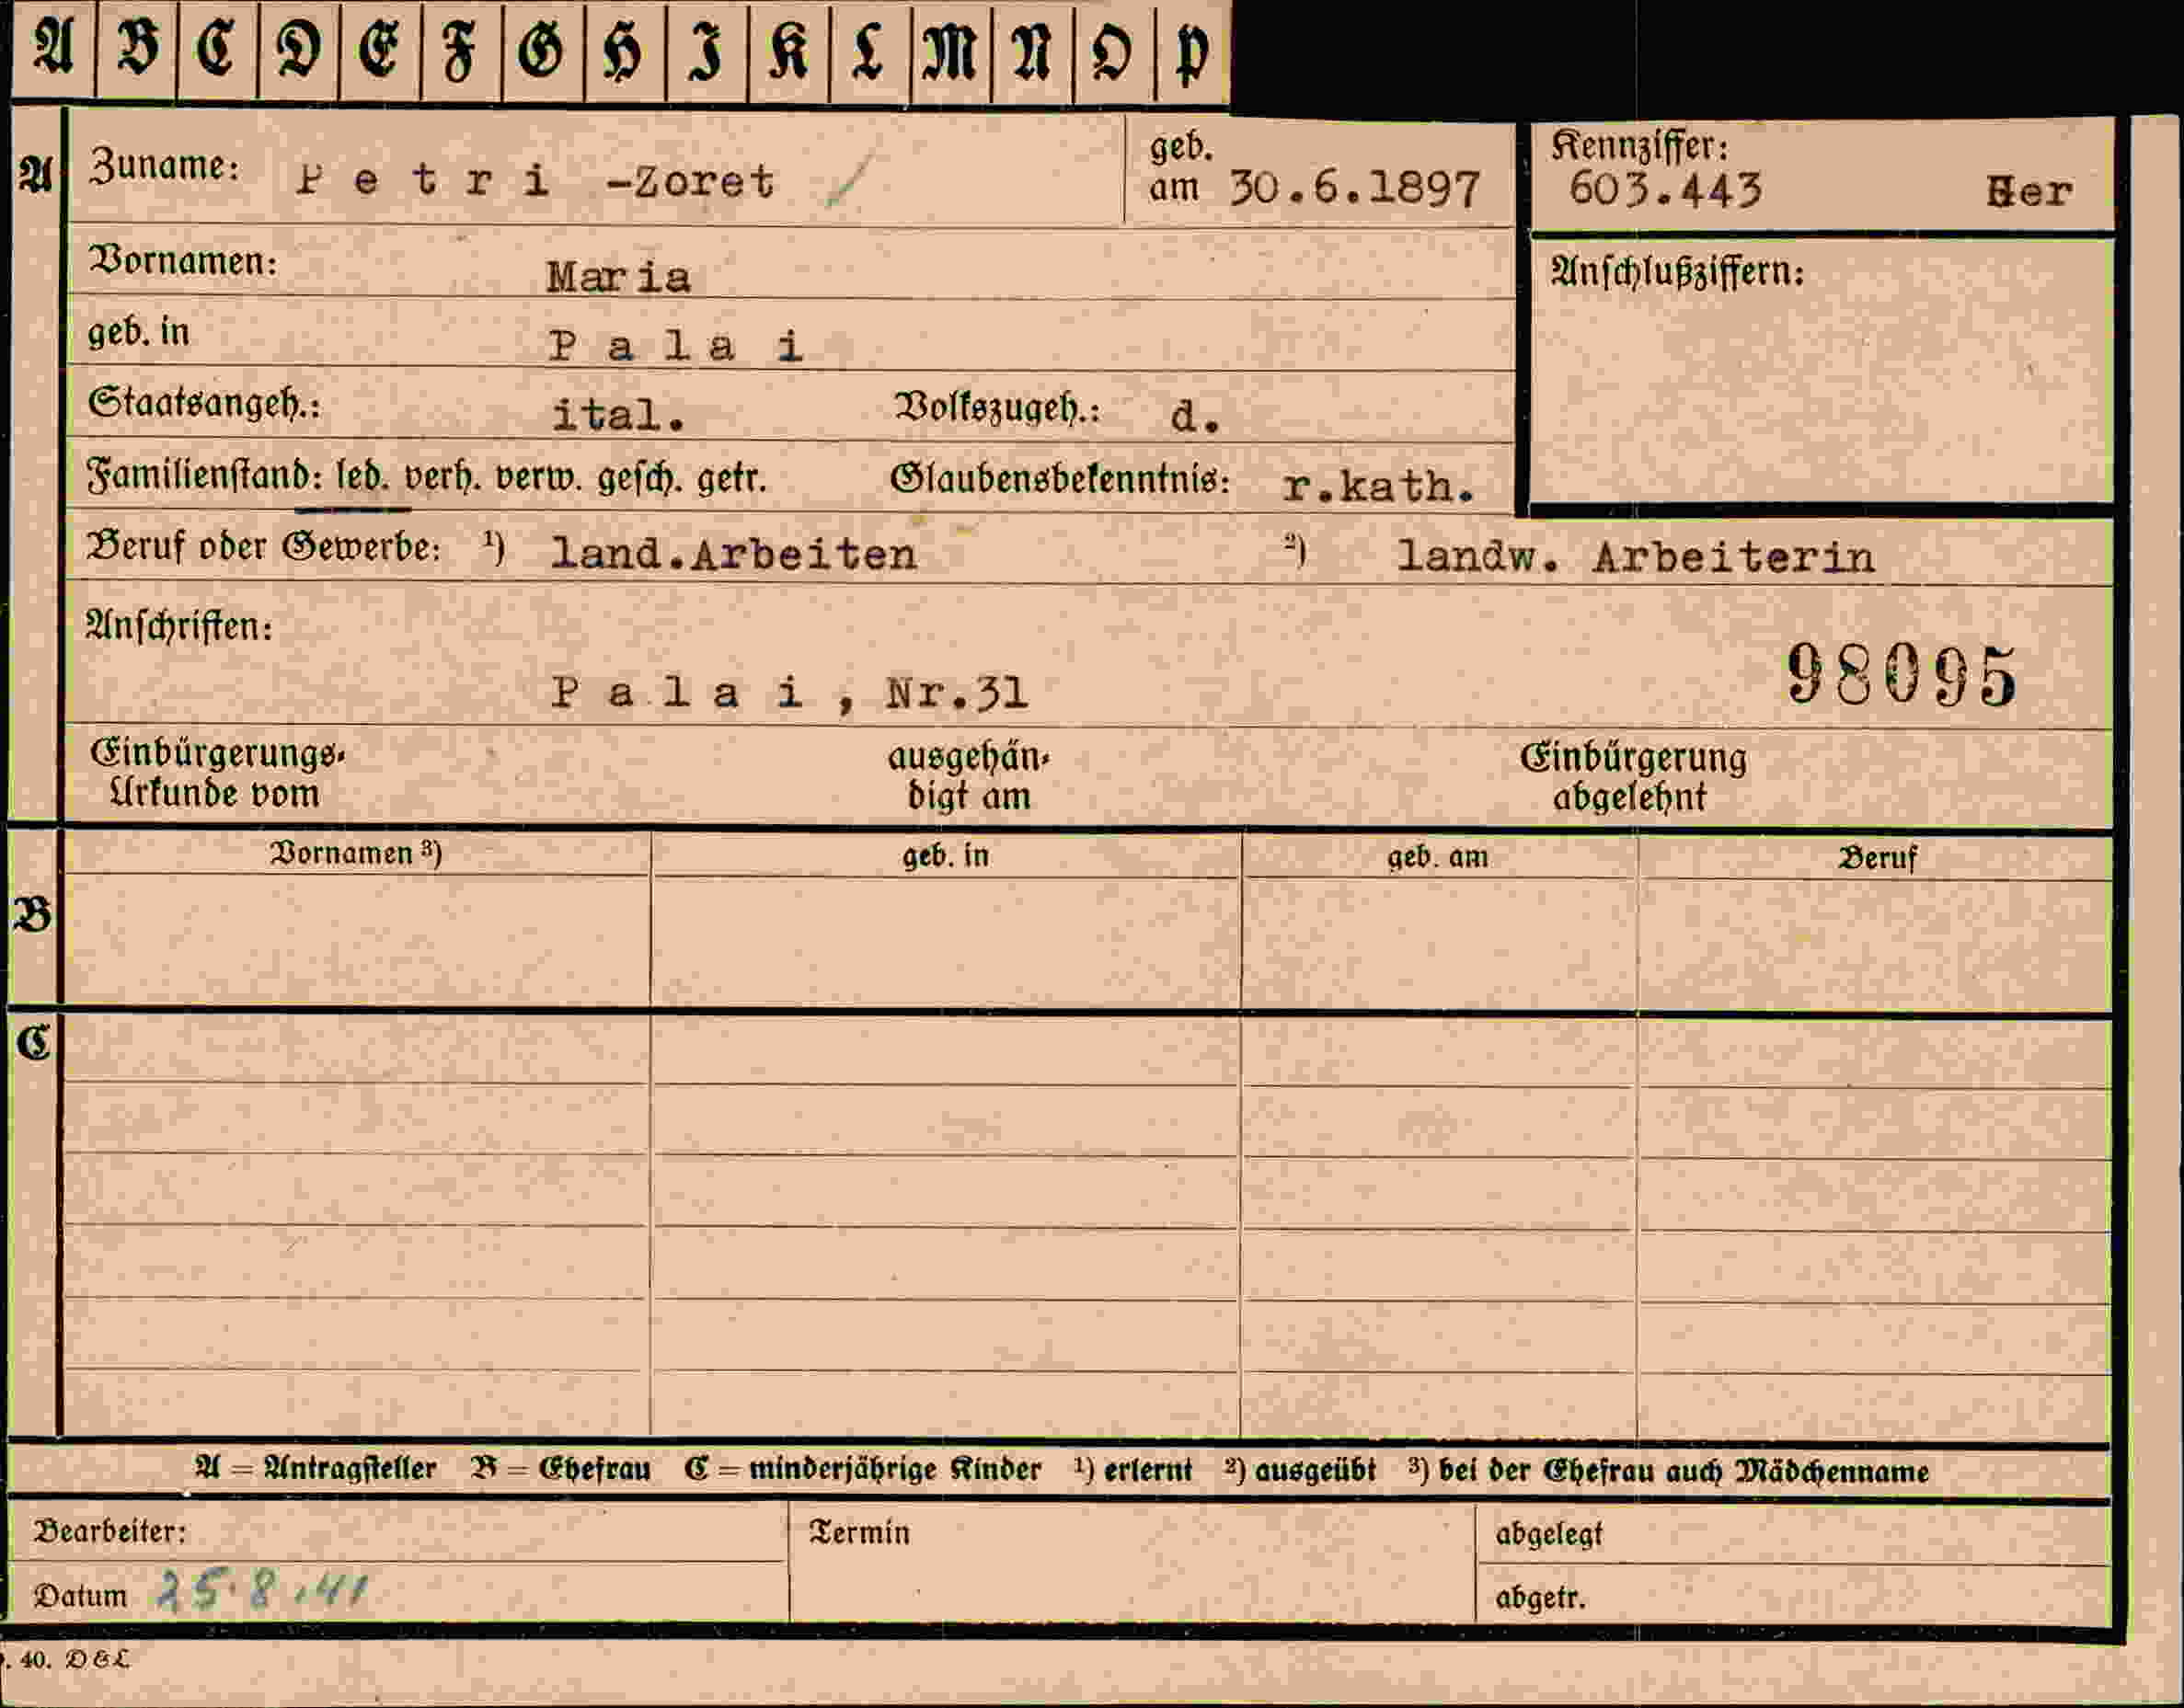 A B C D E F G H I K L M N O P
A Zuname: Petri -Zoret geb. am 30.6.1897 Kennziffer: 603.443 Her
Vornamen: Maria Anschlußziffern:
geb. in Palai
Staatsangeh.: ital. Volkszugeh.: d.
Familienstand: led. verh. verw. gesch. getr. Glaubensbekenntnis: r.kath.
Beruf oder Gewerbe: ¹) land.Arbeiten ²) landw. Arbeiterin
Anschriften:
Palai, Nr.31 98095
Einbürgerungs- ausgehän- Einbürgerung
Urkunde vom digt am abgelehnt
Vornamen ³) geb. in geb. am Beruf
B
C
A = Antragsteller B = Ehefrau C = minderjährige Kinder ¹) erlernt ²) ausgeübt ³) bei der Ehefrau auch Mädchenname
Bearbeiter: Termin abgelegt
Datum 25.8.41 abgetr.
. 40. D&L